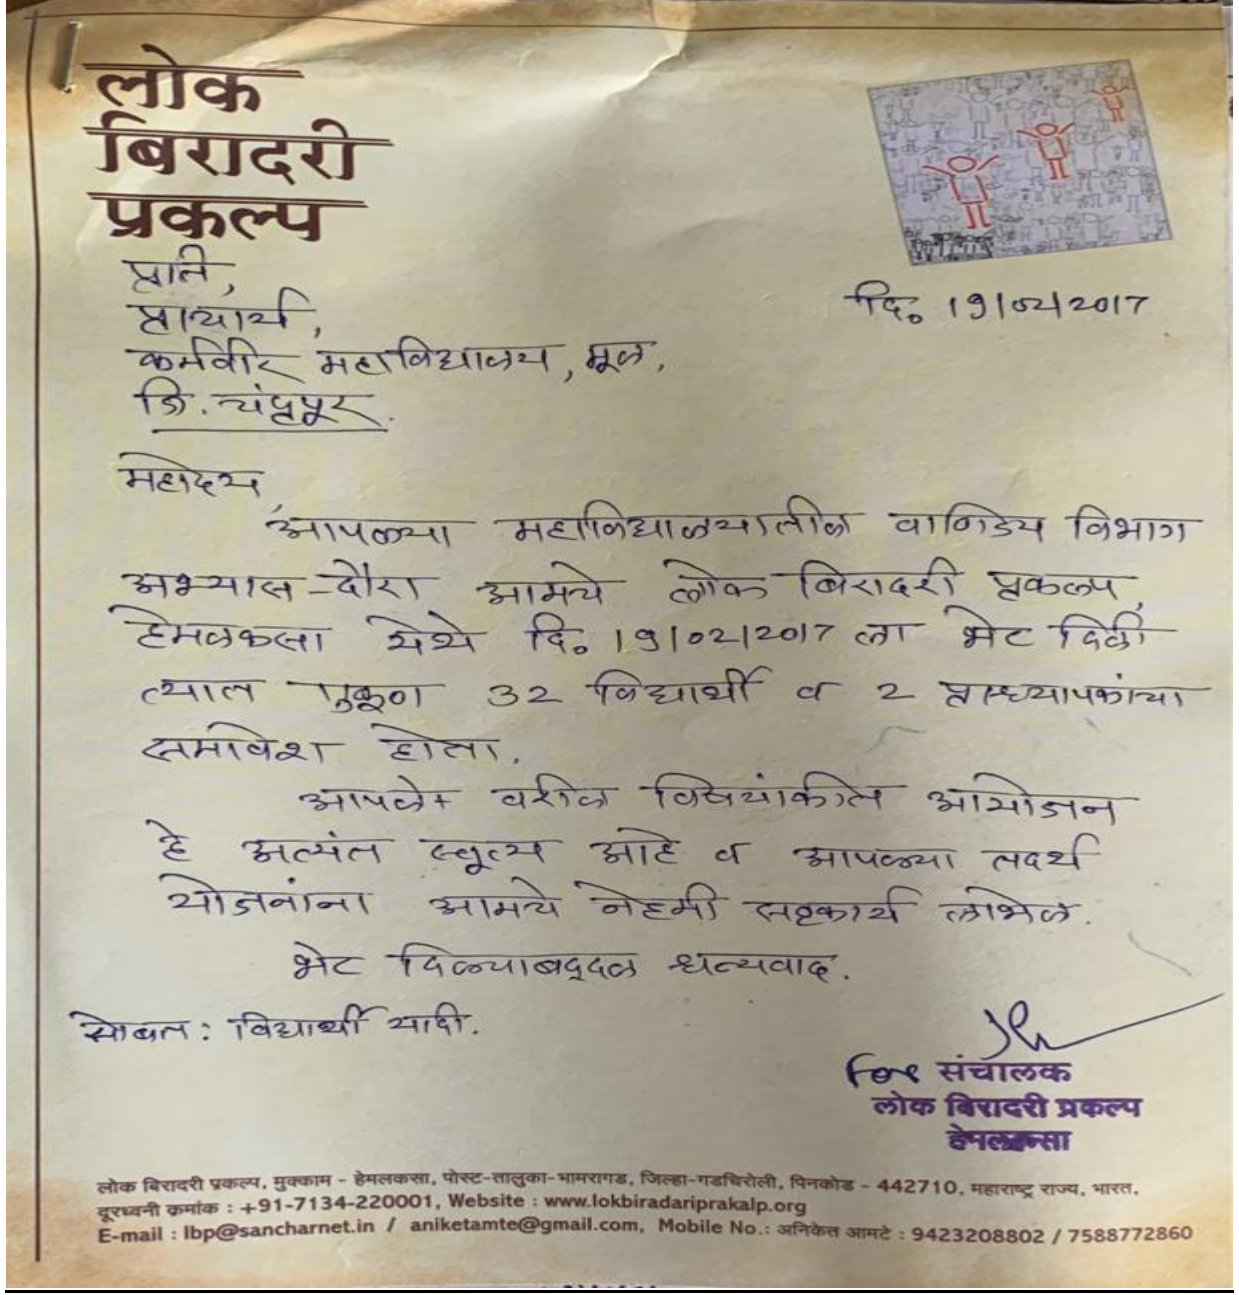 लोक
बिरादरी
प्रकल्प
प्रति,
प्राचार्य,
दि. 19/02/2017
कर्मवीर महाविद्यालय, मूल,
जि. चंद्रपूर.
महोदय,
आपल्या महाविद्यालयातील वाणिज्य विभाग
अभ्यास-दौरा आमचे लोक बिरादरी प्रकल्प,
हेमलकसा येथे दि. 19/02/2017 ला भेट दिली
त्यात एकूण 32 विद्यार्थी व 2 प्राध्यापकांचा
समावेश होता.
आपले वरील विषयांकीत आयोजन
हे अत्यंत स्तुत्य आहे व आपल्या तदर्थ
योजनांना आमचे नेहमी सहकार्य लाभेल.
भेट दिल्याबद्दल धन्यवाद.
सोबत: विद्यार्थी यादी.
For संचालक
लोक बिरादरी प्रकल्प
हेमलकसा
लोक बिरादरी प्रकल्प, मुक्काम - हेमलकसा, पोस्ट-तालुका-भामरागड, जिल्हा-गडचिरोली, पिनकोड - 442710, महाराष्ट्र राज्य, भारत.
दूरध्वनी क्रमांक : +91-7134-220001, Website : www.lokbiradariprakalp.org
E-mail : lbp@sancharnet.in / aniketamte@gmail.com, Mobile No.: अनिकेत आमटे : 9423208802 / 7588772860